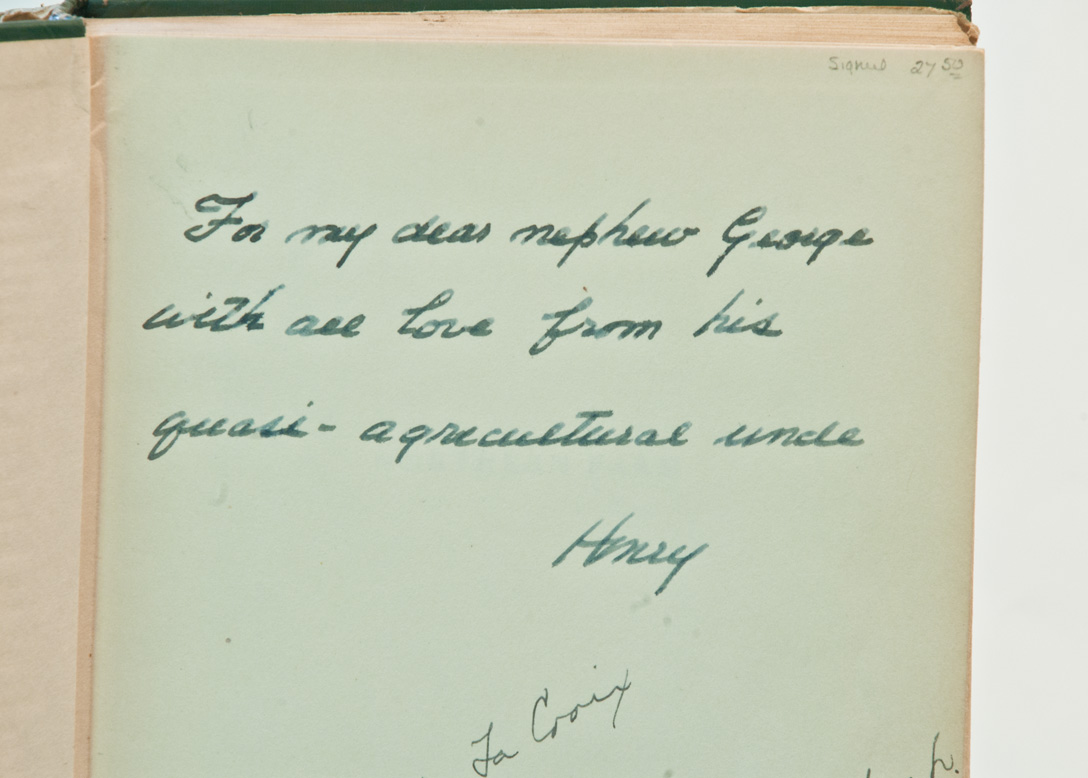 Signed 27 50
For my dear nephew George
with all love from his
quasi-agricultural uncle
Henry
La Croix
Jr.